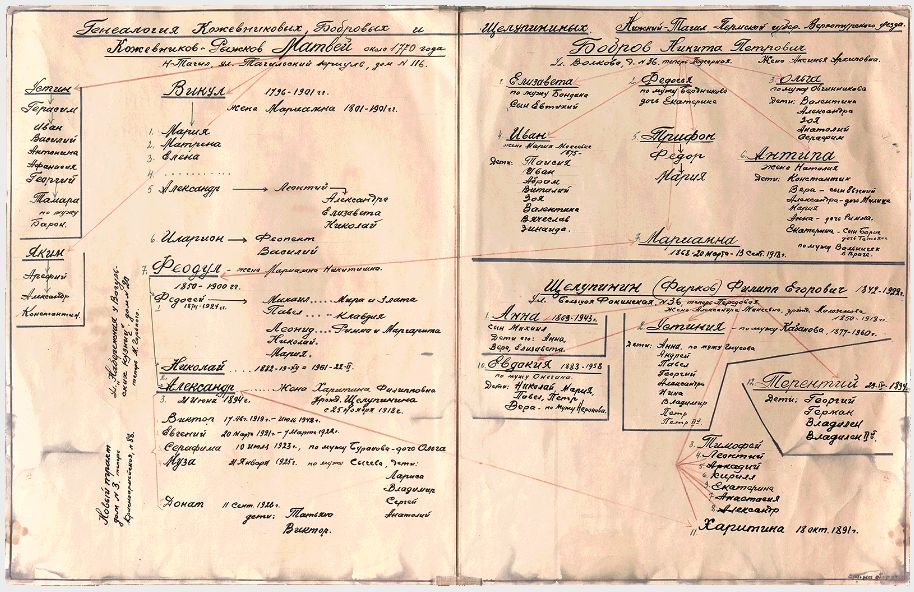 Генеалогия Кожевниковых, Бобровых и
Кожевников-Рыжков Матвей около 1770 года
Н-Тагил, ул. Тагильский, дом № 116.
Устин
Герасим
Иван
Василий
Антонина
Афанасия
Георгий
Тамара
по мужу
Барон.
Яким
Арефий
Александр
Константин.
Винул 1796-1901 гг.
Жена Марианна 1801-1901 гг.
1. Мария
2. Матрена
3. Елена
4. ..........
5 Александр → Леонтий
Александра
Елизавета
Николай
6 Иларион → Феопент
Василий
7. Феодул - жена Марианна Никитишна.
1850 - 1900 гг.
Федосей Михаил Мира и Злата
1874-1924 гг. Павел Клавдия
Леонид Римма и Маргарита
Николай.
Мария.
Николай 1882
Александр Жена Харитина Филипповна
Урожд. Щелупинина
3. 21 Июня 1894 г. с 25 Ноября 1918 г.
Виктор
Евгений 20 Марта 1921 г. - 7 Марта 1922 г.
Серафима 10 Июля 1923 г., по мужу дочь Ольга
Муза 21 Января 1925 г. по мужу Сычева, дети:
Лариса
Владимир
Сергей
Анатолий
Донат 11 Сент. 1926 г.
дети: Татьяна
Виктор.
Новый тракт
дом № 3, теперь
Красноармейская, № 88.
Щелупининых Нижний-Тагил Пермской губер. Верхотурского уезда.
Бобров Никита Петрович
Ул. Волкова д. № 36, теперь Жена Аксинья Архиповна.
1. Елизавета
по мужу Бондина
Сын Евтихий
2. Федосья
по мужу
дочь Екатерина
3. Ольга
по мужу Овчинникова
Дети: Валентина
Александра
Зоя
Анатолий
Серафим
4. Иван
жена Мария
1875-
Дети: Таисия
Иван
Абрам
Виталий
Зоя
Валентина
Вячеслав
Зинаида.
5. Трифон
Федор
Мария
6. Антипа
Жена Наталия
Дети: Константин
Вера - сын Евгений
Александра - дочь Милица
Мария
Анна - дочь Римма.
Екатерина - Сын Борис
дочь Татьяна
по мужу
в Праге.
7. Марианна
1862 - 20 Марта - 13 Сент. 1918 г.
Щелупинин (Фарков) Филипп Егорович 1842-1922 гг.
Ул. Большая Фокинская, № 36, теперь
Жена Александра
1850-1918 гг.
1. Анна 1869-1943 г.
сын Михаил
Дети его: Анна,
Вера, Елизавета.
2. Устиния - по мужу Кабанова, 1877-1960 г.
Дети: Анна, по мужу
Андрей
Павел
Георгий
Александра
Нина
Владимир
Петр
Петр II й.
10. Евдокия 1883-1958
по мужу Онегина.
Дети: Николай, Мария,
Павел, Петр,
Вера - по мужу
12. Терентий
Дети: Георгий
Герман
Владилен
Владилен II й.
3. Тимофей
4. Леонтий
5. Аркадий
6. Кирилл
9. Екатерина
7. Анастасия
8. Александр
11. Харитина 18 окт. 1891 г.